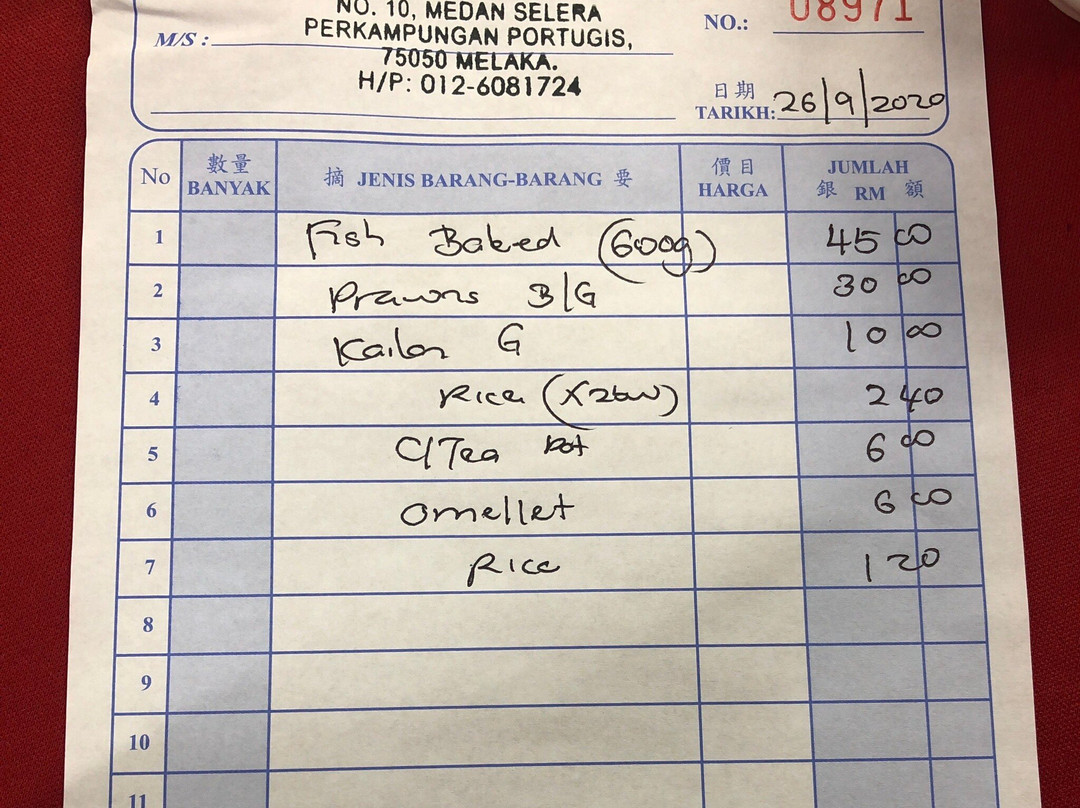 NO. 10, MEDAN SELERA
PERKAMPUNGAN PORTUGIS,
75050 MELAKA.
H/P: 012-6081724
M/S :
NO.: 08971
日期
TARIKH: 26/9/2020
No 數量 BANYAK 摘 JENIS BARANG-BARANG 要 價目 HARGA JUMLAH 銀 RM 額
1 Fish Baked (600g) 45 00
2 Prawns B/G 30 00
3 Kailan G 10 00
4 Rice 2 40
5 C/Tea Pot 6 00
6 Omellet 6 00
7 Rice 1 20
8
9
10
11